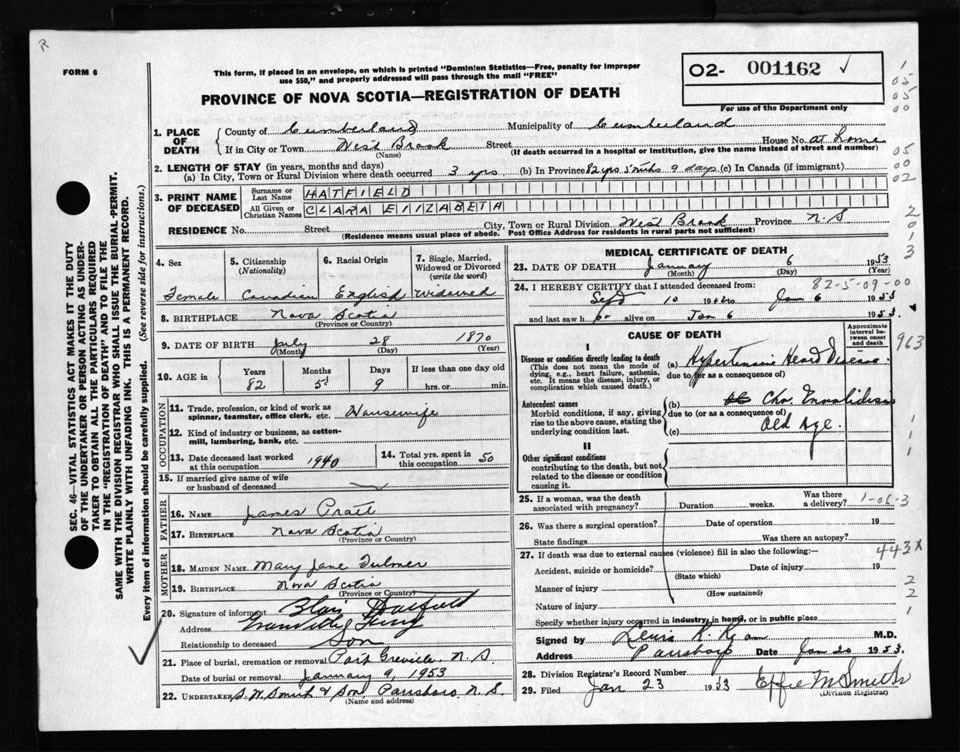 R
FORM 6
This form, if placed in an envelope, on which is printed "Dominion Statistics—Free, penalty for improper
use $50," and properly addressed will pass through the mail "FREE"
O2- 001162 ✓
For use of the Department only
PROVINCE OF NOVA SCOTIA—REGISTRATION OF DEATH
1. PLACE OF DEATH
County of Cumberland Municipality of Cumberland
If in City or Town West Brook Street House No. at home
(Name) (If death occurred in a hospital or institution, give the name instead of street and number)
2. LENGTH OF STAY (in years, months and days)
(a) In City, Town or Rural Division where death occurred 3 yrs. (b) In Province 82 yrs 5 mths 9 days (c) In Canada (if immigrant)
3. PRINT NAME OF DECEASED
Surname or Last Name HATFIELD
All Given or Christian Names CLARA ElIZABETH
RESIDENCE No. Street City, Town or Rural Division West Brook Province N.S
(Residence means usual place of abode. Post Office Address for residents in rural parts not sufficient)
4. Sex
Female
5. Citizenship
(Nationality)
Canadian
6. Racial Origin
English
7. Single, Married,
Widowed or Divorced
(write the word)
Widowed
8. BIRTHPLACE Nova Scotia
(Province or Country)
9. DATE OF BIRTH July 28 1870
(Month) (Day) (Year)
10. AGE in
Years Months Days If less than one day old
82 5 9 hrs. or min.
OCCUPATION
11. Trade, profession, or kind of work as
spinner, teamster, office clerk, etc. Housewife
12. Kind of industry or business, as cotton-
mill, lumbering, bank, etc.
13. Date deceased last worked
at this occupation 1940
14. Total yrs. spent in
this occupation 50
15. If married give name of wife
or husband of deceased
FATHER
16. NAME James Pratt
17. BIRTHPLACE Nova Scotia
(Province or Country)
MOTHER
18. MAIDEN NAME Mary Jane Fulmer
19. BIRTHPLACE Nova Scotia
(Province or Country)
20. Signature of informant Blair Hatfield
Address Granville Ferry
Relationship to deceased Son
21. Place of burial, cremation or removal Port Greville, N.S.
Date of burial or removal January 9, 1953
22. UNDERTAKER S.W. Smith & Son, Parrsboro, N.S.
(Name and address)
MEDICAL CERTIFICATE OF DEATH
23. DATE OF DEATH January 6 1953
(Month) (Day) (Year)
24. I HEREBY CERTIFY that I attended deceased from: 82-5-09-00
Sept 10 19 to Jan 6 1953
and last saw h er alive on Jan 6 1953.
CAUSE OF DEATH
Approximate interval between onset and death
I
Disease or condition directly leading to death
(This does not mean the mode of
dying, e.g., heart failure, asthenia,
etc. It means the disease, injury, or
complication which caused death.)
(a) Hypertensive Heart Disease
due to (or as a consequence of)
Antecedent causes
Morbid conditions, if any, giving
rise to the above cause, stating the
underlying condition last.
(b) Chr.
due to (or as a consequence of)
(c) Old Age.
II
Other significant conditions
contributing to the death, but not
related to the disease or condition
causing it.
25. If a woman, was the death
associated with pregnancy? Duration weeks. Was there a delivery? 1-06-3
26. Was there a surgical operation? Date of operation 19
State findings Was there an autopsy?
27. If death was due to external causes (violence) fill in also the following:
Accident, suicide or homicide? Date of injury 19
(State which)
Manner of injury
(How sustained)
Nature of injury
Specify whether injury occurred in industry, in home, or in public place
Signed by Lewis R. Ryan M.D.
Address Parrsboro Date Jan 20 1953.
28. Division Registrar's Record Number
29. Filed Jan 23 1953 Effie M Smith
(Division Registrar)
SEC. 46—VITAL STATISTICS ACT MAKES IT THE DUTY
OF THE UNDERTAKER OR PERSON ACTING AS UNDER-
TAKER TO OBTAIN ALL THE PARTICULARS REQUIRED
IN THE "REGISTRATION OF DEATH" AND TO FILE THE
SAME WITH THE DIVISION REGISTRAR WHO SHALL ISSUE THE BURIAL-PERMIT.
WRITE PLAINLY WITH UNFADING INK. THIS IS A PERMANENT RECORD.
Every item of information should be carefully supplied. (See reverse side for instructions.)
1
05
05
00
05
00
02
2
0
1
3
963
1
1
1
443X
2
2
1